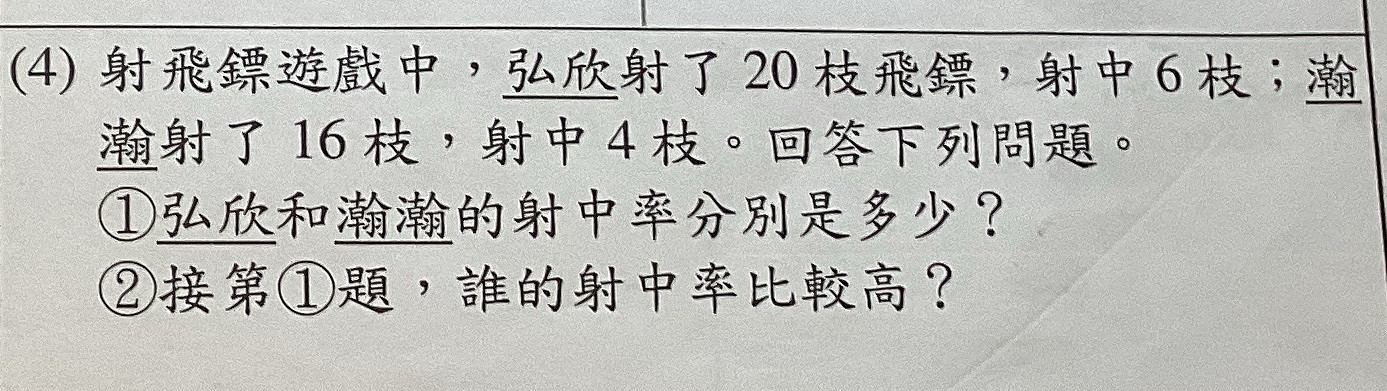 (4) 射飛鏢遊戲中，弘欣射了 20 枝飛鏢，射中 6 枝；瀚
瀚射了 16 枝，射中 4 枝。回答下列問題。
①弘欣和瀚瀚的射中率分別是多少？
②接第①題，誰的射中率比較高？